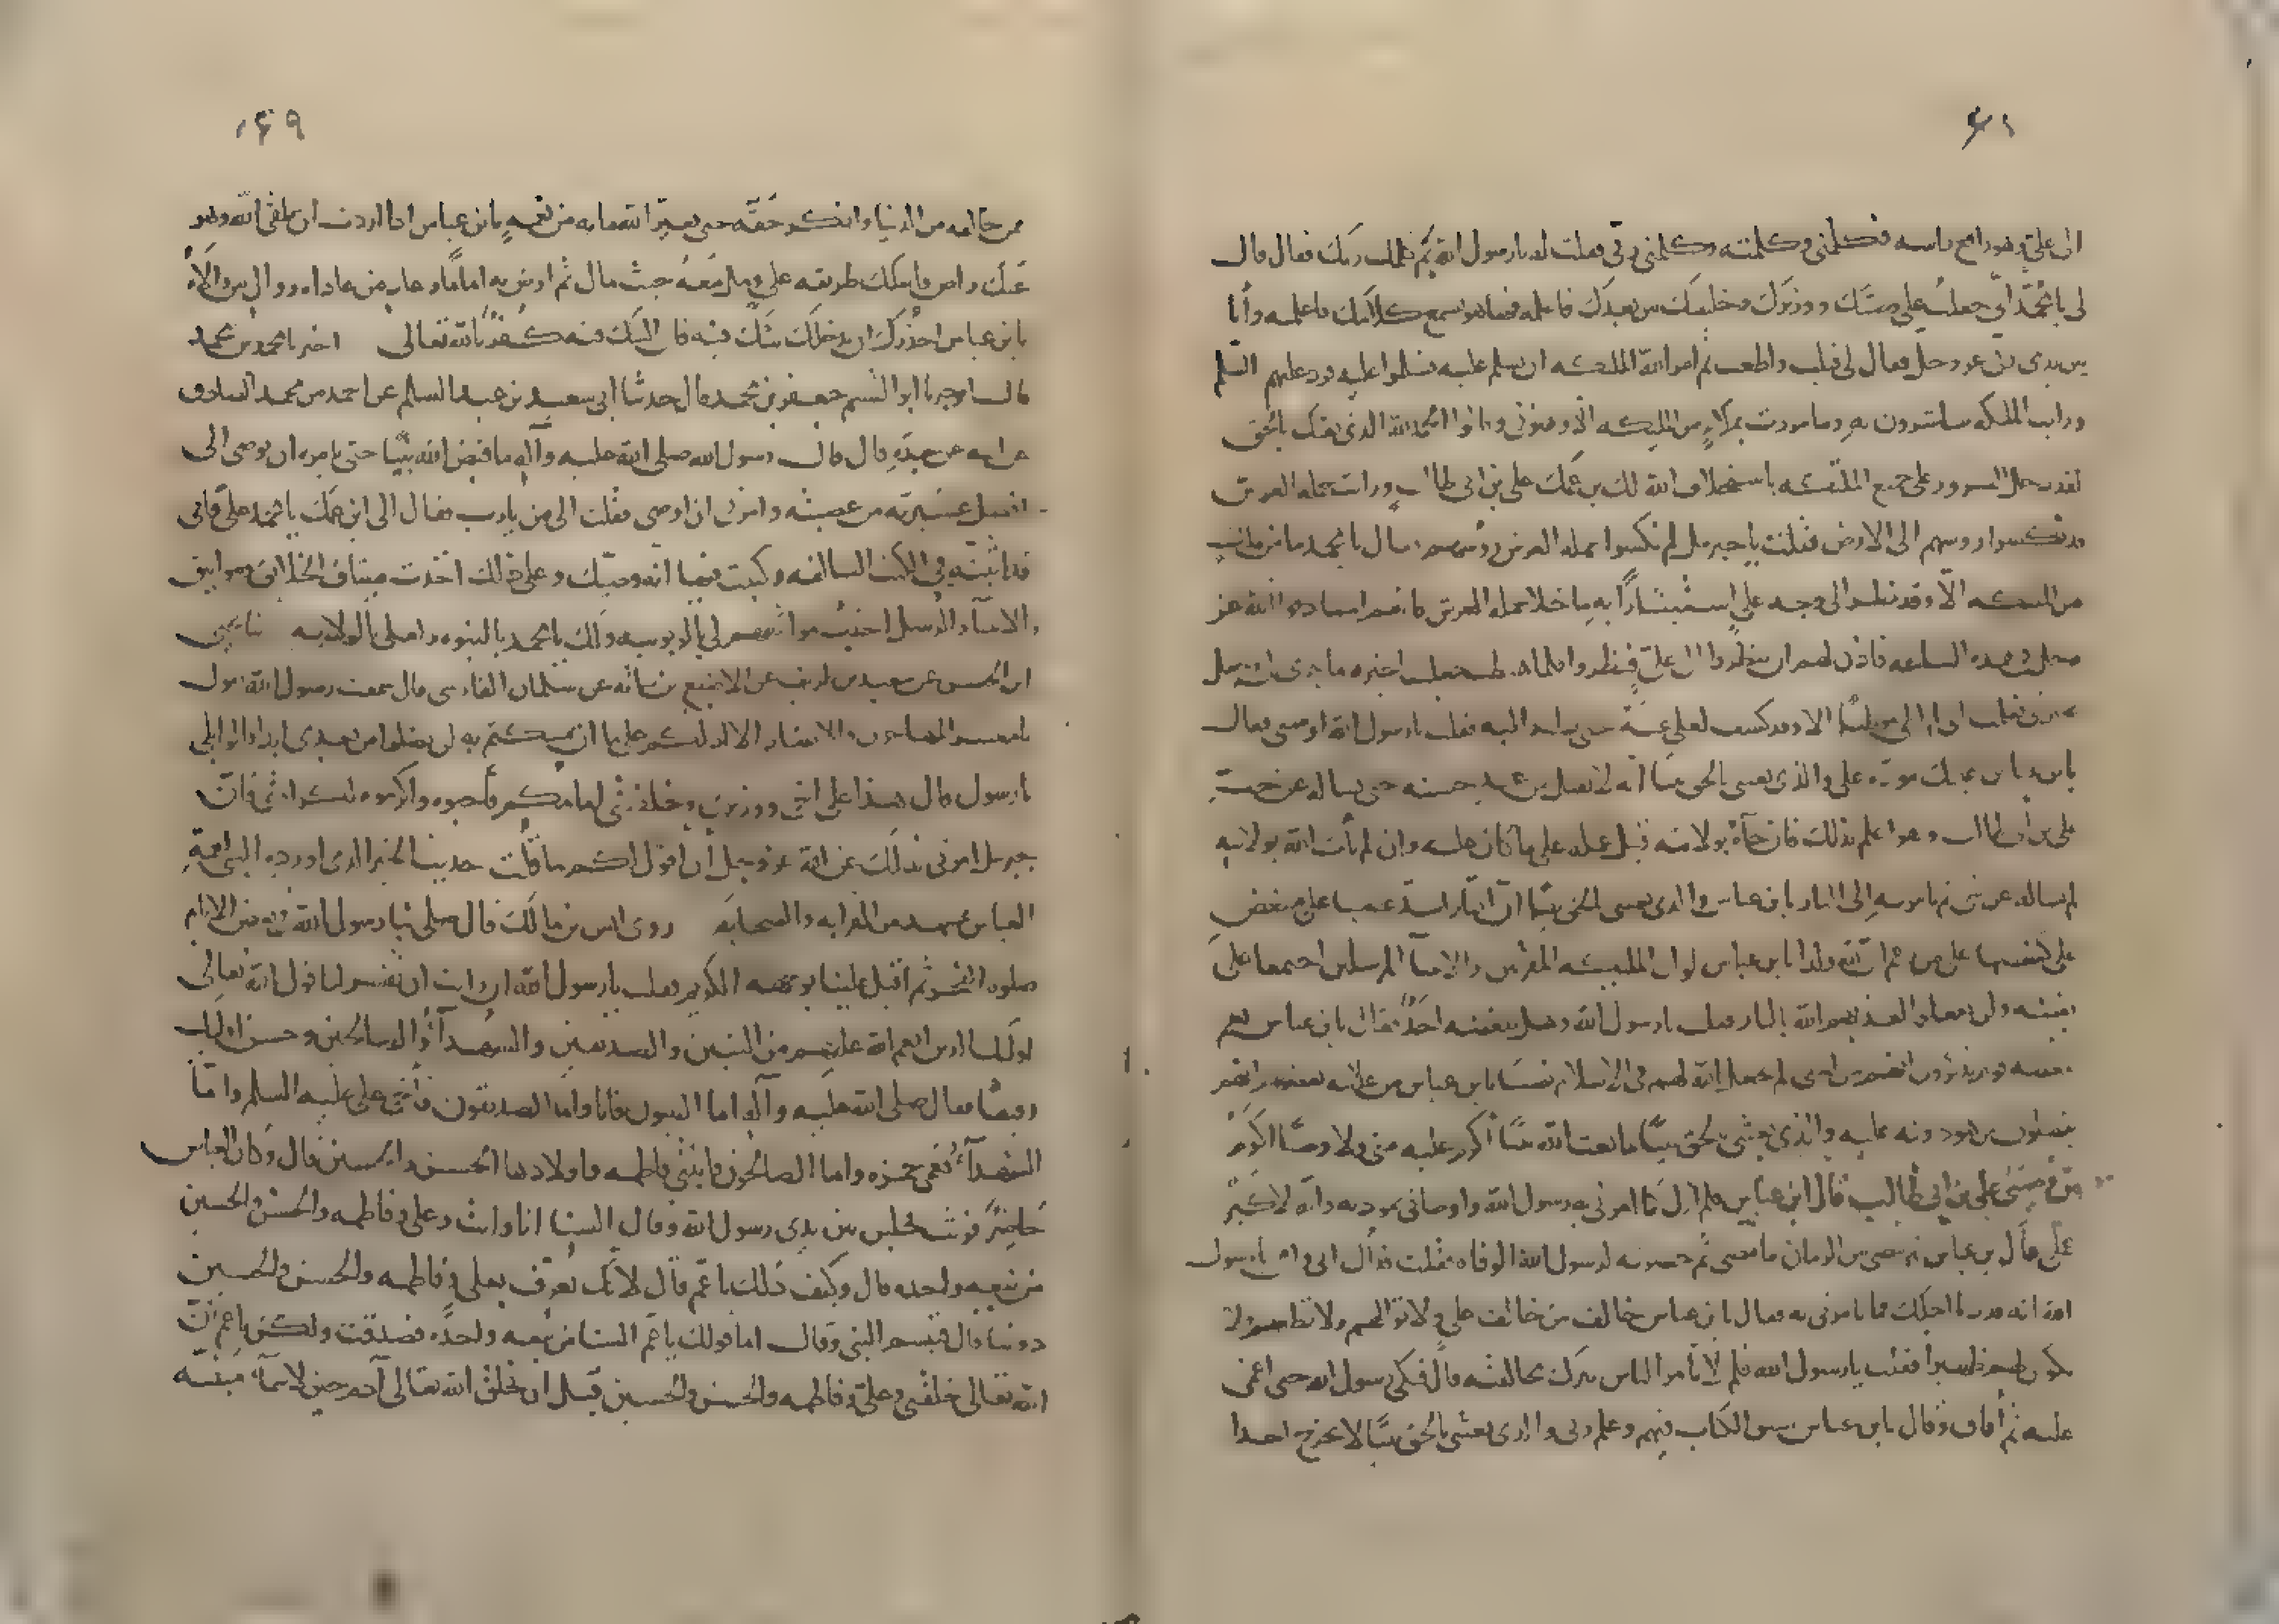 ٤١
الى علي وهو رافع راسه فكلمني وكلمته وكلمني ربي فقلت له يا رسول الله بم كلمك ربك فقال قال
لي يا محمد اني جعلت علي وصيك ووزيرك وخليفتك من بعدك فاعلمه فها هو يسمع كلامك فاعلمته وأنا
بين يدي ربي عز وجل فقال لي قبلت واطعت ثم امر الله الملئكه ان يسلم عليه فسلموا عليه فرد عليهم السلم
ورايت الملئكه يستبشرون به وما مررت بملاء من الملئكه الا وهنوني وقالوا يا محمد والذي بعثك بالحق
لقد دخل السرور على جميع الملئكه باستخلاف الله لك بن عمك علي بن ابي طالب ورايت حمله العرش
قد نكسوا روسهم الى الارض فقلت يا جبرئيل لم نكسوا حمله العرش روسهم فقال يا محمد ما من ملك
من الملئكه الا وقد نظر الى وجه علي استبشاراً به ما خلا حمله العرش فانهم استاذنوا الله عز
وجل في هذه الساعه فاذن لهم ان ينظروا الى علي فنظروا فلما هبطت جعلت اخبره ما جرى
يخبرني فعلمت اني لم موطئا الا وقد كشف لعلي عنه حتى نظر اليه فقلت يا رسول الله اوصني فقال
يا بن عباس عليك مودة علي والذي بعثني بالحق نبيا انه لا يقبل من عبد حسنه حتى يساله عن حب
علي بن ابي طالب وهو اعلم بذلك فان جآءه بولايته قبل عمله على ما كان عليه وان لم يأت الله بولايته
لم يساله عن شي ثم يامر به إلى النار يا بن عباس والذي بعثني بالحق نبيا ان النار اشد غضبا على مبغضي
علي منها على من زعم ان لله ولدا يا بن عباس لو ان الملئيكه المقربين والانبيآ المرسلين اجتمعوا على
بغضه ولن يفعلوا لعذبهم الله بالنار فقلت يا رسول الله وهل يبغضه احد فقال يا بن عباس نعم
يبغضه قوم يذكرون انهم من امتي لم يجعل الله لهم في الاسلام نصيبا يا بن عباس من علامه بغضهم له انهم
يفضلون من هو دونه عليه والذي بعثني بالحق نبيًا ما بعث الله نبيا أكرم عليه مني ولا وصيا اكرم
من وصيي علي بن ابي طالب قال ابن عباس فلم ازل كما امرني به رسول الله واوصاني بمودته وانه لاكبر
عملي قال بن عباس ثم مضى من الزمان ما مضى ثم حضرت رسول الله الوفاه فقلت فداك ابي وامي يا رسول
الله انه قد دنا اجلك فما تامرني به فقال يا بن عباس خالف من خالف علي ولا توالهم ولا
تكون لهم ظهيرا فقلت يا رسول الله فلم لا تأمر الناس بترك مخالفته قال فبكى رسول الله حتى اغمي
عليه ثم أفاق وقال يا بن عباس سبق الكتاب فيهم وعلم ربي والذي بعثني بالحق نبيًا لا يخرج احدا
١٤٩
ممن خالفه من الدنيا وانكر حَقّه حتى يغيّر الله ما به من نعمه يا بن عباس اذا اردت ان تلقى الله وهو
عنك راض فاسلك طريقه علي ومل مَعَهُ حيث مال ثم ارض به اماماً وعاد من عاداه ووال من والاه
يا بن عباس احذرك ان يدخلك شك فيه فان الشك فيه كفر بالله تعالى اخبرنا محمد بن محمد
قال اخبرنا ابو القسم جعفر بن محمد قال حدثنا ابي سعيد بن عبد السلام عن احمد بن محمد الصادق
عن ابيه عن جده قال قال رسول الله صلى الله عليه وآله ما قبض الله نبيا حتى يامره ان يوصي الى
افضل عشيرته من عصبته وامرني ان اوصي فقلت الى من يا رب فقال الى ابن عمك يا محمد علي فاني
قد اثبته في الكتب السالفه وكتبت فيها انه وصيك وعلى ذلك اخذت ميثاق الخلائق ومواثيق
الانبيآء والرسل اخذت مواثيقهم لي بالربوبيه ولك يا محمد بالنبوه ولعلي بالولايه
ابن الحسن عن سعيد بن طريف عن الاصبغ بن نباته عن سلمان الفارسي قال سمعت رسول الله يقول
يا معشر المهاجرين والانصار الا ادلكم على ما ان تمسكتم به لن تضلوا من بعدي ابدا قالوا بلى
يا رسول قال هذا علي اخي ووزيري وخليفتي امامكم فأحبوه واكرموه لكرامتي فان
جبرئيل امرني بذلك عن الله عز وجل أن اقول لكم ما قلت حديث الخبر الذي اورده النبي لعمه
العباس بمشهد من القرابه والصحابه روى انس بن مالك قال صلى بنا رسول الله في بعض الايام
صلوه الفجر ثم اقبل علينا بوجهه الكريم فقلت يا رسول الله ان رايت ان تفسر لنا قول الله تعالى
اولئك الذين انعم الله عليهم من النبيين والصديقين والشهدآء والصالحين وحسن اولئك
رفيقا فقال صلى الله عليه وآله اما النبيون فانا واما الصديقون فأخي علي عليه السلم وامّا
الشهدآء فعمي حمزه واما الصالحون فابنتي فاطمه واولادها الحسن والحسين قال وكان العباس
حاضِرًا فوثب فجلس بين يدي رسول الله وقال السنا انا وانت وعلي وفاطمه والحسن والحسين
من نبعه واحده قال وكيف ذلك يا عم قال لانك تعرف بعلي وفاطمه والحسن والحسين
دوننا قال فتبسم النبي وقال اما قولك يا عم السنا من نبعه واحده فصدقت ولكن يا عم ان
الله تعالى خلقني وعلي وفاطمه والحسن والحسين قبل ان يخلق الله تعالى آدم حين لا سمآء مبنيه